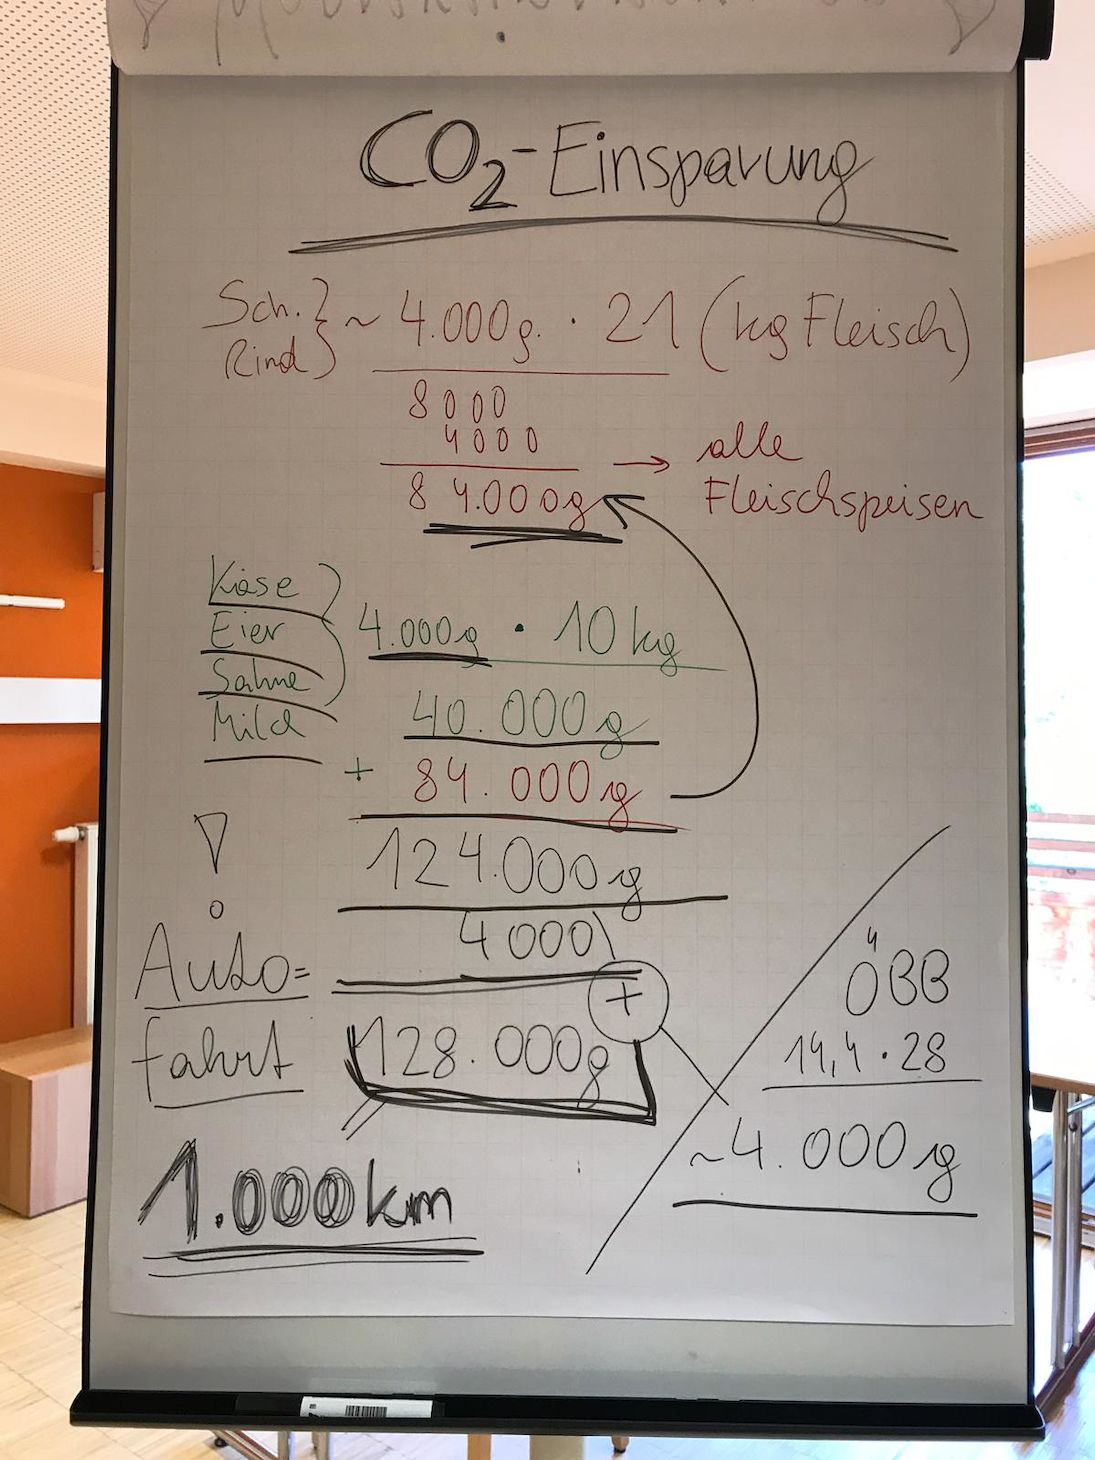 CO₂-Einsparung
Sch. } ~ 4.000g. · 21 (kg Fleisch)
Rind
8000
4000
84.000g → alle
Fleischspeisen
Käse
Eier 4.000g · 10 kg
Sahne
Milch 40.000g
+ 84.000g
124.000g
4000
! Auto=
fahrt 128.000g
+
1.000km
ÖBB
14,4 · 28
~4.000g